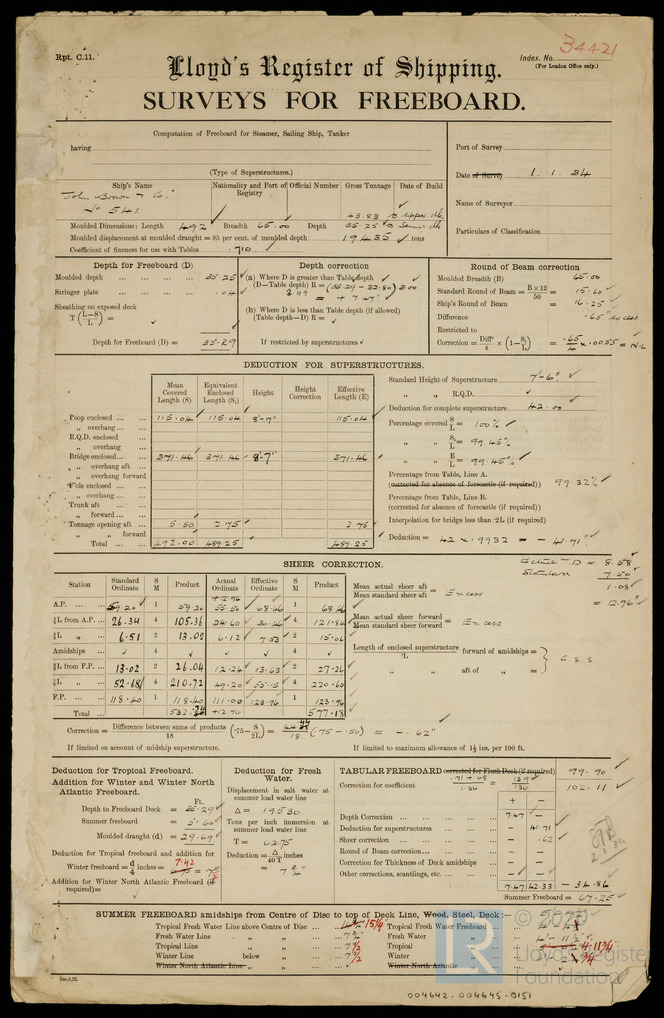 Rpt. C.11.
34421
Index. No.
(For London Office only.)
Lloyd's Register of Shipping.
SURVEYS FOR FREEBOARD.
Computation of Freeboard for Steamer, Sailing Ship, Tanker
having
(Type of Superstructures.)
Port of Survey
Date of Survey 1.1.34
Name of Surveyor
Particulars of Classification
Ship's Name Nationality and Port of Registry Official Number Gross Tonnage Date of Build
John Brown & Co.
No 541.
Moulded Dimensions: Length 492 Breadth 65.00 Depth 35.25
Moulded displacement at moulded draught = 85 per cent. of moulded depth 19435 tons
Coefficient of fineness for use with Tables .710
Depth for Freeboard (D)
Moulded depth 35.25
Stringer plate .04
Sheathing on exposed deck
T (L-S/L) =
Depth for Freeboard (D) = 35.29
Depth correction
(a) Where D is greater than Table depth
(D—Table depth) R = (35.29 - 32.80) 3.00
2.49 = + 7.47"
(b) Where D is less than Table depth (if allowed)
(Table depth—D) R =
If restricted by superstructures
Round of Beam correction
Moulded Breadth (B) 65.00
Standard Round of Beam = B×12/50 = 15.60
Ship's Round of Beam = 16.25
Difference .65" excess
Restricted to
Correction = Diff/4 × (1—S₁/L) = .65/4 × .0055 = Nil
DEDUCTION FOR SUPERSTRUCTURES.
Mean Covered Length (S) Equivalent Enclosed Length (S₁) Height Height Correction Effective Length (E)
Poop enclosed 115.04 115.04 8'-7" 115.04
„ overhang
R.Q.D. enclosed
„ overhang
Bridge enclosed 371.46 371.46 8'-7" 371.46
„ overhang aft
„ overhang forward
F'cle enclosed
„ overhang
Trunk aft
„ forward
Tonnage opening aft 5.50 2.75 2.75
„ „ forward
Total 492.00 489.25 489.25
Standard Height of Superstructure 7'-6"
„ „ R.Q.D.
Deduction for complete superstructure 42.00
Percentage covered S/L = 100%
„ „ S₁/L = 99.45%
„ „ E/L = 99.45%
Percentage from Table, Line A. 99.32%
(corrected for absence of forecastle (if required))
Percentage from Table, Line B.
(corrected for absence of forecastle (if required))
Interpolation for bridge less than ·2L (if required)
Deduction = 42 × .9932 = - 41.71"
SHEER CORRECTION.
Actual - D = 8.58
Standard 7.50
1.08
= 12.96"
Station Standard Ordinate S M Product Actual Ordinate Effective Ordinate S M Product
+12.96
A.P. 59.20 1 59.20 55.50 68.46 1 68.46
⅙L from A.P. 26.34 4 105.36 24.60 30.46 4 121.84
⅓L „ 6.51 2 13.02 6.12 7.53 2 15.06
Amidships 4 4
⅓L from F.P. 13.02 2 26.04 12.24 13.63 2 27.26
⅙L „ 52.68 4 210.72 49.20 55.15 4 220.60
F.P. 118.40 1 118.40 111.00 123.96 1 123.96
Total +12.96 577.18
Mean actual sheer aft / Mean standard sheer aft = Excess
Mean actual sheer forward / Mean standard sheer forward = Excess
Length of enclosed superstructure / L forward of amidships =
„ „ aft of „ =
C.S.S
Correction = Difference between sums of products / 18 (·75—S/2L) = 44.44/18 (.75-.50) = - .62"
If limited on account of midship superstructure.
If limited to maximum allowance of 1½ ins. per 100 ft.
Deduction for Tropical Freeboard.
Addition for Winter and Winter North Atlantic Freeboard.
Ft.
Depth to Freeboard Deck = 35.29
Summer freeboard = 5.60
Moulded draught (d) = 29.69
Deduction for Tropical freeboard and addition for
Winter freeboard = d/4 inches = 7.42
Addition for Winter North Atlantic Freeboard (if required) =
Deduction for Fresh Water.
Displacement in salt water at summer load water line
Δ = 19530
Tons per inch immersion at summer load water line
T = 62.75
Deduction = Δ/40T inches
= 7¾"
TABULAR FREEBOARD corrected for Flush Deck (if required) 99.90
Correction for coefficient .71 + .68/1.36 = 139/136 102.11
+ —
Depth Correction 7.47 —
Deduction for superstructures — 41.71
Sheer correction — .62
Round of Beam correction — —
Correction for Thickness of Deck amidships — —
Other corrections, scantlings, etc. — —
7.47 42.33 - 34.86
Summer Freeboard = 67.25
SUMMER FREEBOARD amidships from Centre of Disc to top of Deck Line, Wood, Steel, Deck:—
Tropical Fresh Water Line above Centre of Disc 15¼ Tropical Fresh Water Freeboard
Fresh Water Line „ „ 7¾ Fresh Water „
Tropical Line „ „ 7½ Tropical „ 4-11¾
Winter Line below „ „ 7½ Winter „
Winter North Atlantic Line „ „ Winter North Atlantic „
© 2020
LR
Lloyd's Register
Foundation
004642-004645-0151